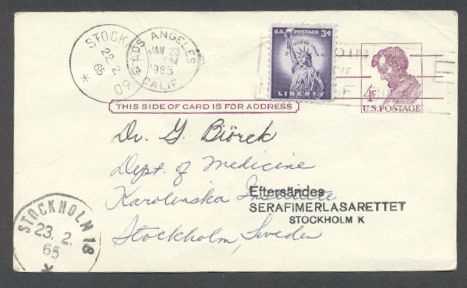 STOCKH
22.2
65
09
*
LOS ANGELES
JAN 23
PM
1965
CALIF
U.S. POSTAGE 3¢
LIBERTY
4¢
U.S. POSTAGE
THIS SIDE OF CARD IS FOR ADDRESS
Dr. G. Biörck
Dept. of Medicine
Karolinska Institute
Stockholm, Sweden
Eftersändes
SERAFIMERLASARETTET
STOCKHOLM K
STOCKHOLM 18
23. 2.
65
*